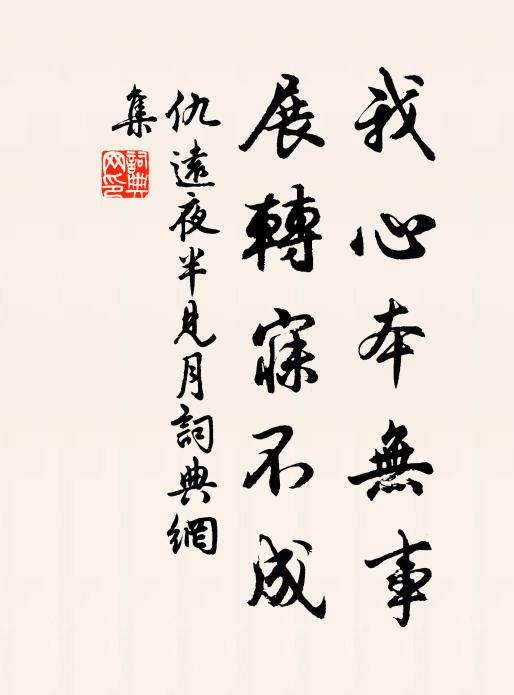 我心本無事
展轉寐不成
仇遠夜半見月詞典網
集
詞典
网印